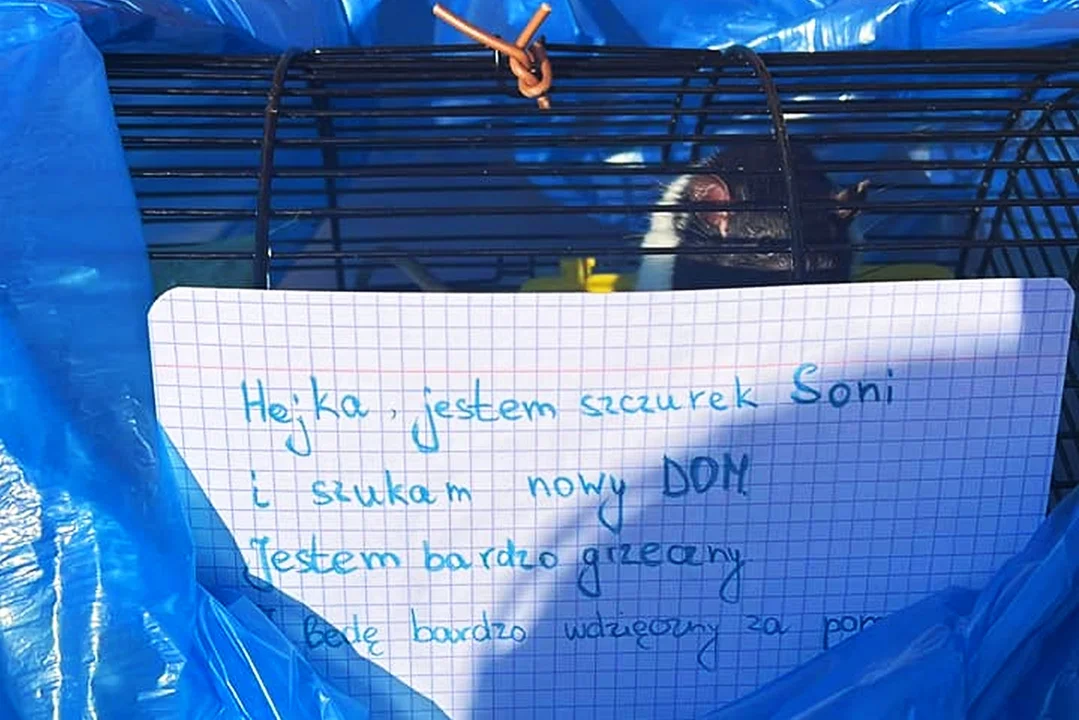 Hejka, jestem szczurek Soni
i szukam nowy DOM
Jestem bardzo grzeczny
Będę bardzo wdzięczny za